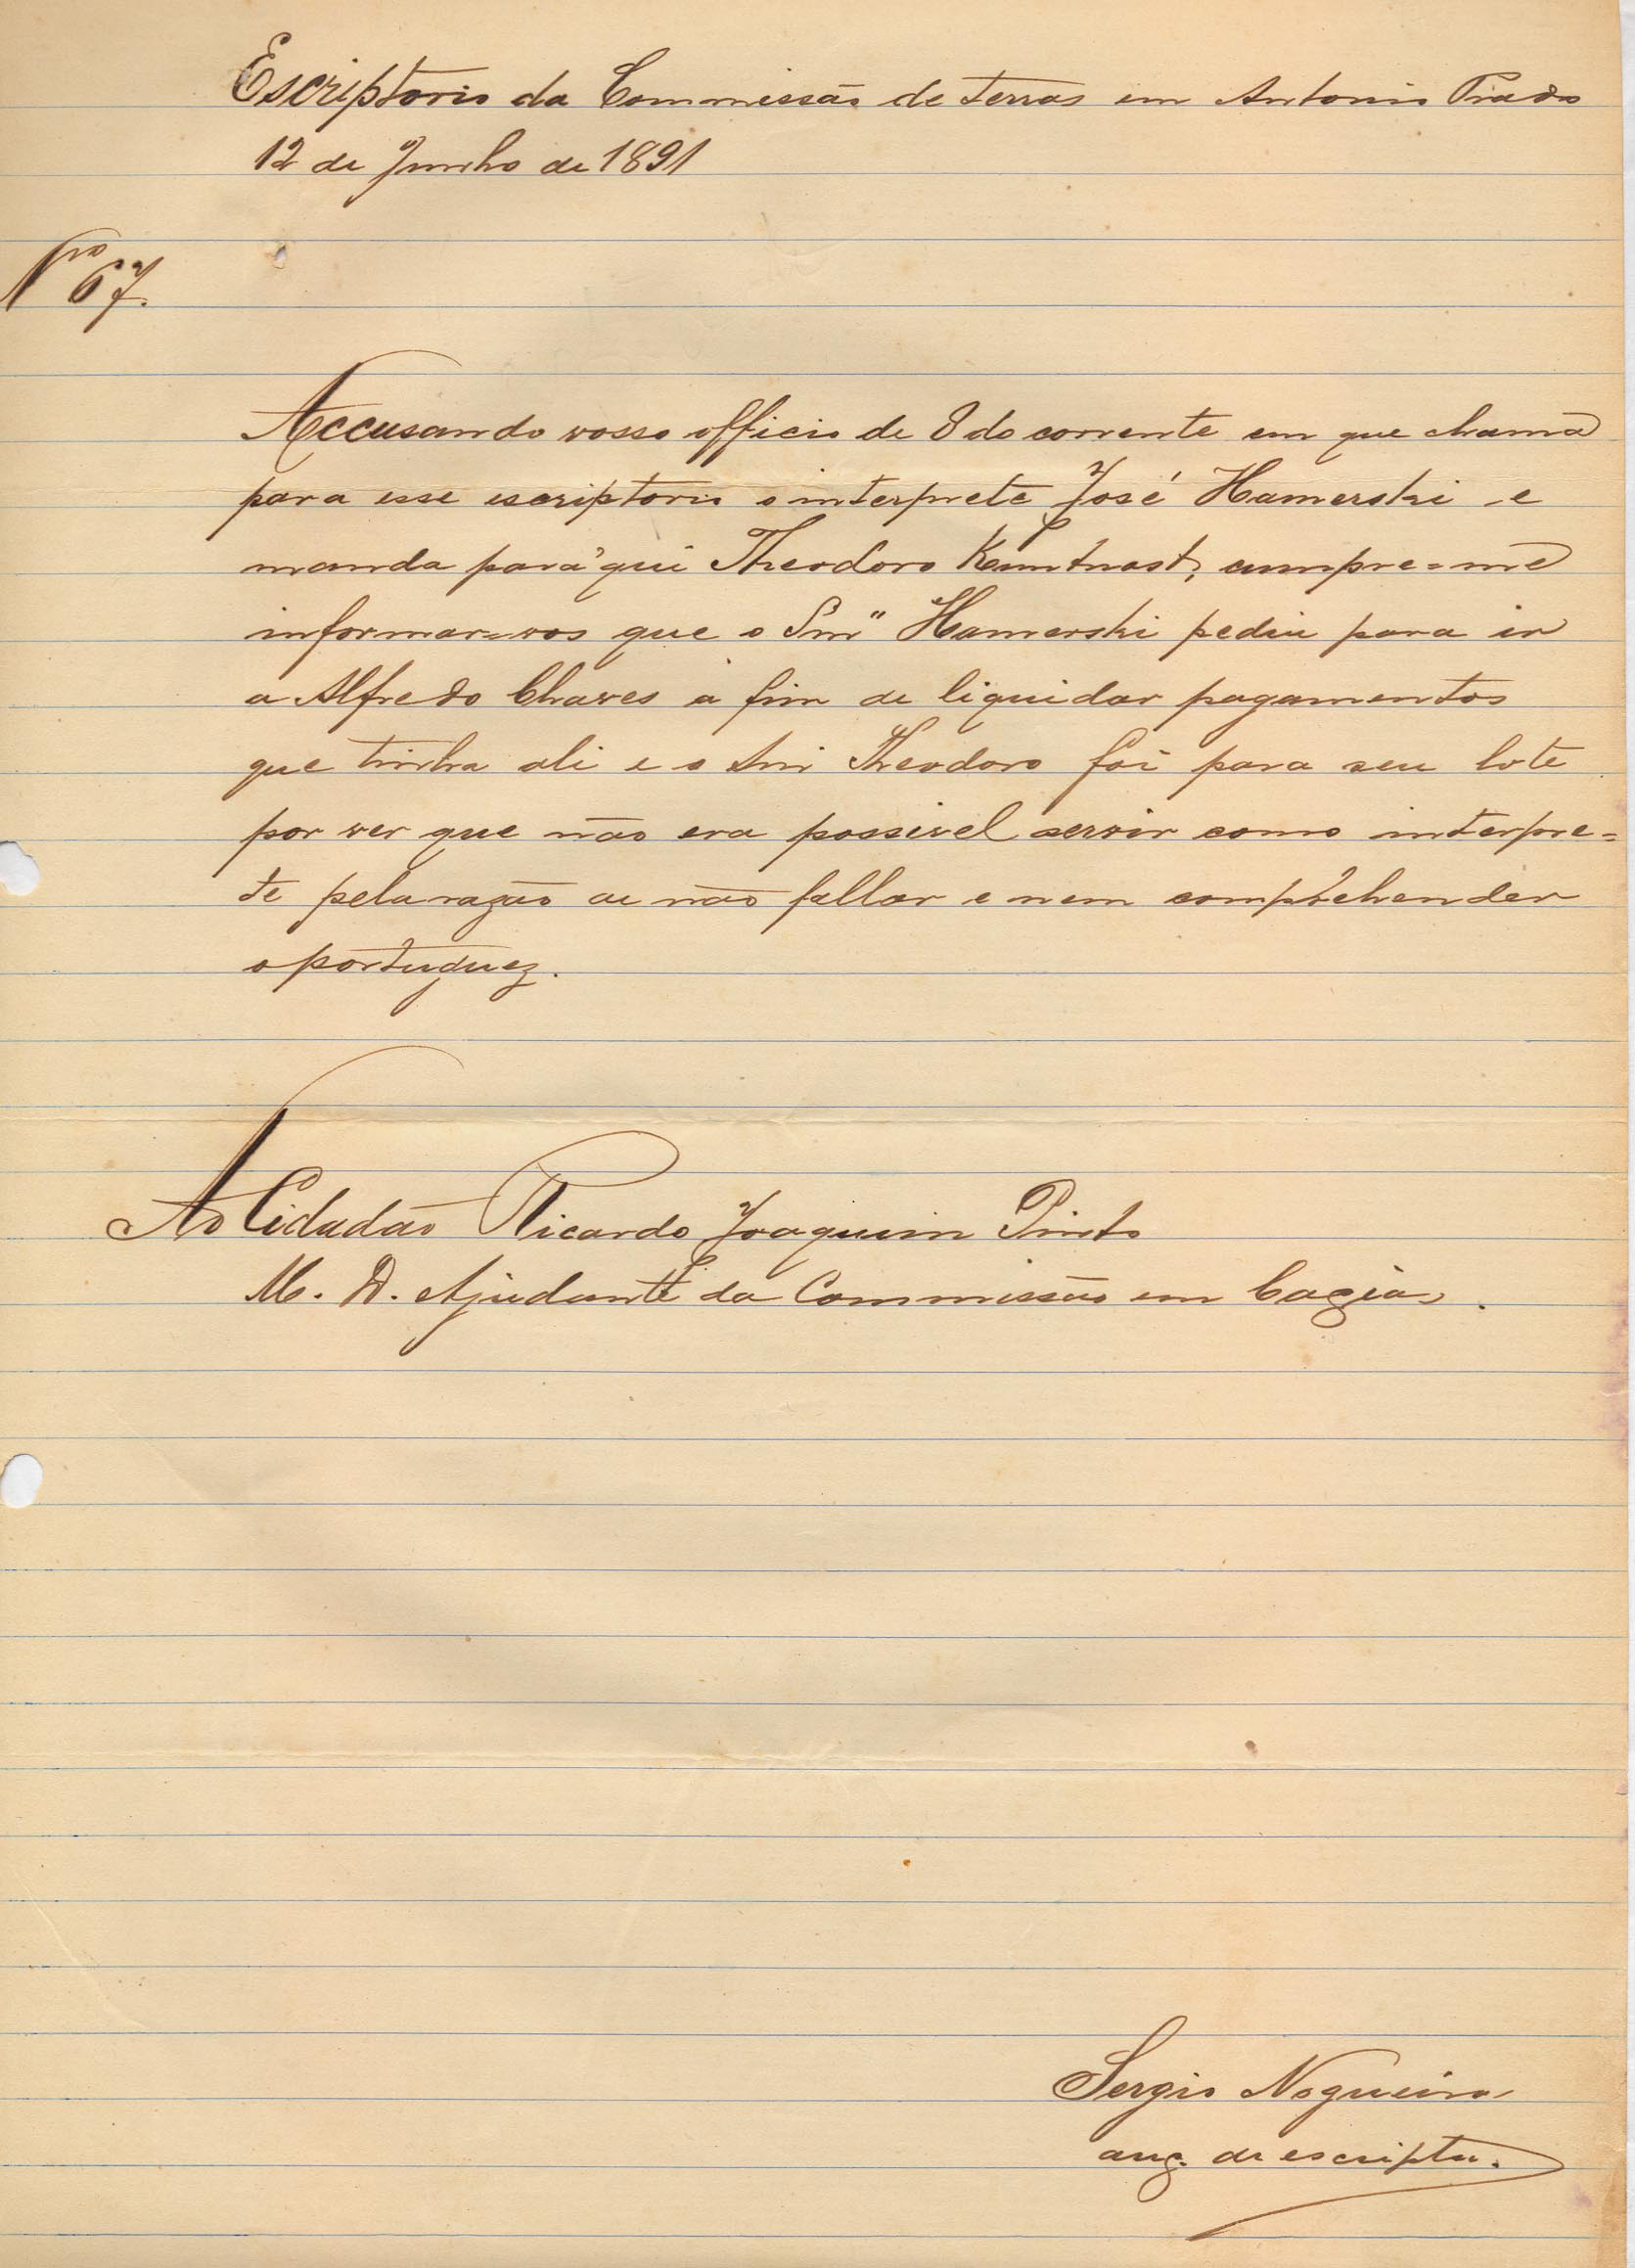 Escriptorio da Commissão de terras em Antonio Prado
12 de Junho de 1891
Nro 67.
Accusando vosso officio de 8 do corrente em que chama
para esse escriptorio o interprete José Hamerski e
manda para'qui Theodoro cumpre=me
informar=vos que o Snr" Hamerski pediu para ir
a Alfredo Chaves a fim de liquidar pagamentos
que tinha ali e o Snr Theodoro foi para seu lote
por ver que não era possivel servir como interpre=
te pela razão de não fallar e nem comprehender
o portuguez.
Ao Cidadão Ricardo Joaquim Pinto
M. D. Ajudante da Commissão em Caxias.
Sergio Nogueira
aux. de escripta.